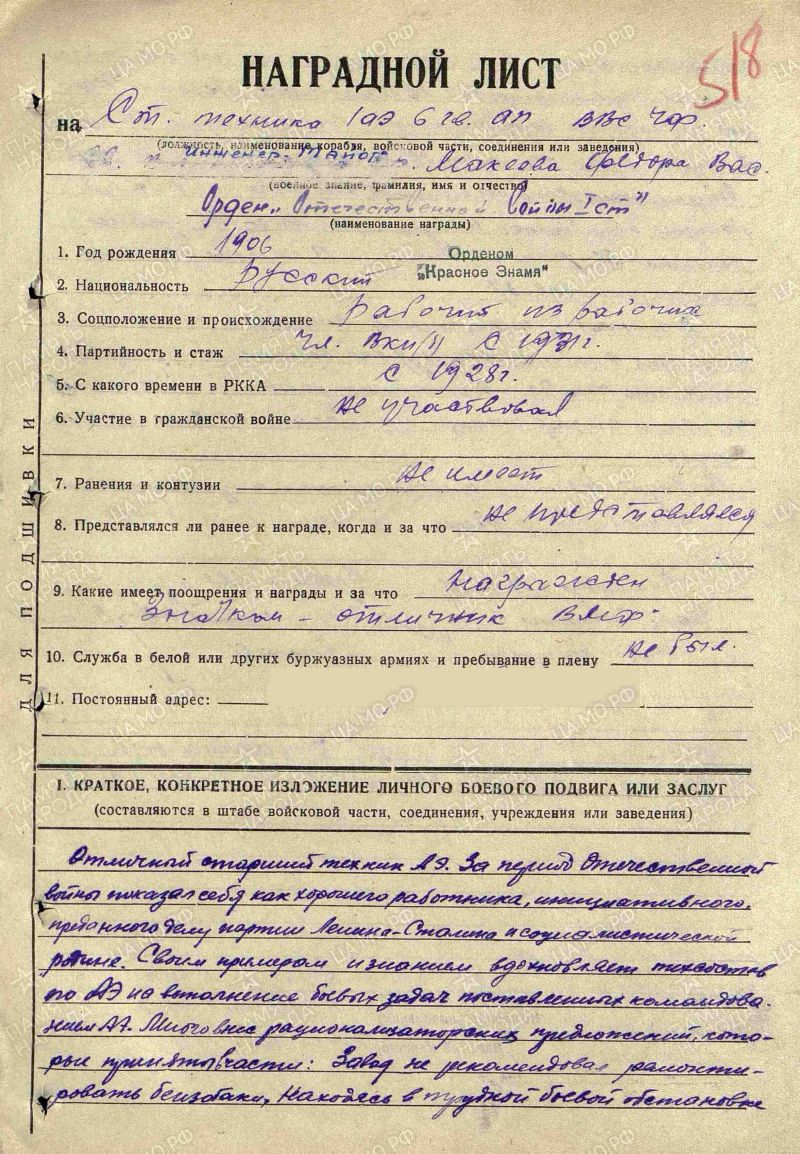 5/8
НАГРАДНОЙ ЛИСТ
на Ст. техника 1 аэ 6 гв. ап ВВС ЧФ.
(должность, наименование корабля, войсковой части, соединения или заведения)
инженер Макеева Федора Вас.
(военное звание, фамилия, имя и отчество)
Орден „Отечественной Войны I ст"
(наименование награды)
1. Год рождения 1906
Орденом
„Красное Знамя"
2. Национальность Русский
3. Соцположение и происхождение рабочий из рабочих
4. Партийность и стаж чл. ВКП/б/ с 1931г.
5. С какого времени в РККА с 1928г.
6. Участие в гражданской войне не участвовал
7. Ранения и контузии не имеет
8. Представлялся ли ранее к награде, когда и за что не представлялся
9. Какие имеет поощрения и награды и за что Награжден
Значком - отличник ВМФ.
10. Служба в белой или других буржуазных армиях и пребывание в плену не был.
11. Постоянный адрес:
ДЛЯ ПОДШИВКИ
I. КРАТКОЕ, КОНКРЕТНОЕ ИЗЛОЖЕНИЕ ЛИЧНОГО БОЕВОГО ПОДВИГА ИЛИ ЗАСЛУГ
(составляются в штабе войсковой части, соединения, учреждения или заведения)
Отличный старший техник АЭ. За период Отечественной
войны показал себя как хорошего работника, инициативного,
преданного делу партии Ленина-Сталина и социалистической
родине. Своим примером и знанием вдохновляет техсостав
по АЭ на выполнение боевых задач поставленных командова-
нием АЭ. Много внес рационализаторских предложений, кото-
рые приняты в части: Завод не рекомендовал ремонти-
ровать бензобаки, находясь в трудной боевой обстановке